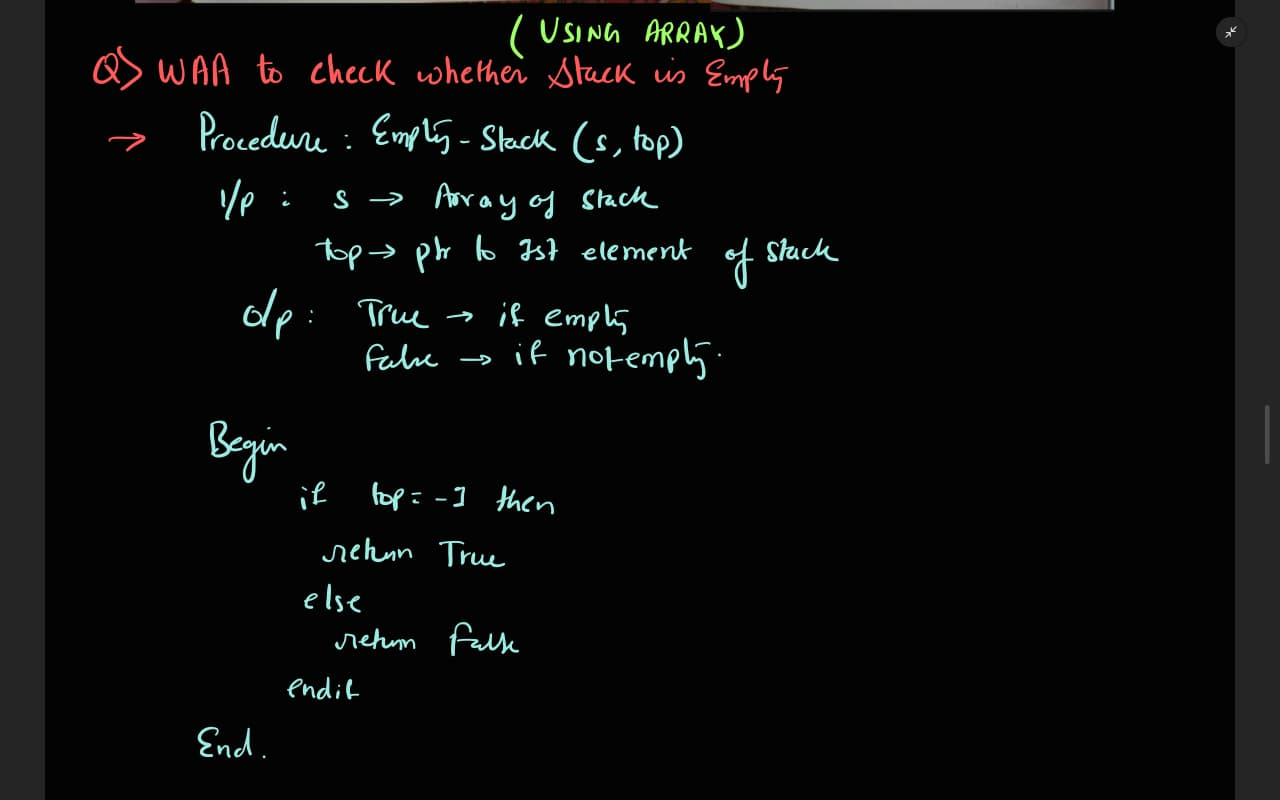 (USING ARRAY)
Q> WAA to check whether Stack is Empty
→ Procedure : Empty-Stack (s, top)
I/p : s → Array of stack
top → ptr to 1st element of stack
o/p : True → if empty
false → if not empty.
Begin
if top = -1 then
return True
else
return false
endif
End.